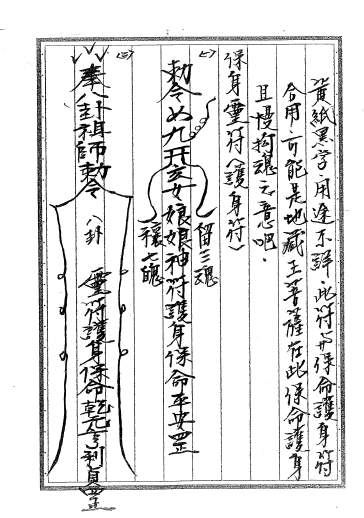 黃紙黑字,用途不詳,此符與保命護身符
合用,可能是地藏王菩薩在此保命護身
且慢拘魂之意吧.
保身靈符(護身符)
(一)
勅令 九天玄女娘娘神符護身保命平安罡
留三魂
穰七魄
(三)
奉八卦祖師勅令 八卦 靈符護身保命乾元亨利貞罡